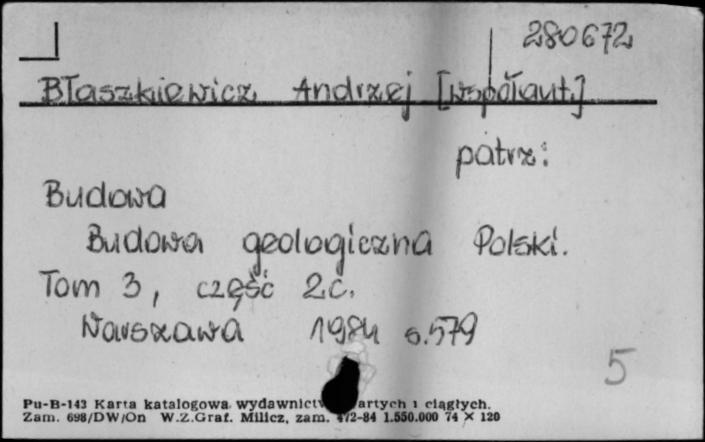 280672
Błaszkiewicz Andrzej [współaut.]
patrz:
Budowa
Budowa geologiczna Polski.
Tom 3, część 2c.
Warszawa 1984 s.579
5
Pu-B-143 Karta katalogowa wydawnictw artych i ciągłych.
Zam. 698/DW/On W.Z.Graf. Milicz, zam. 472-84 1.550.000 74 × 120